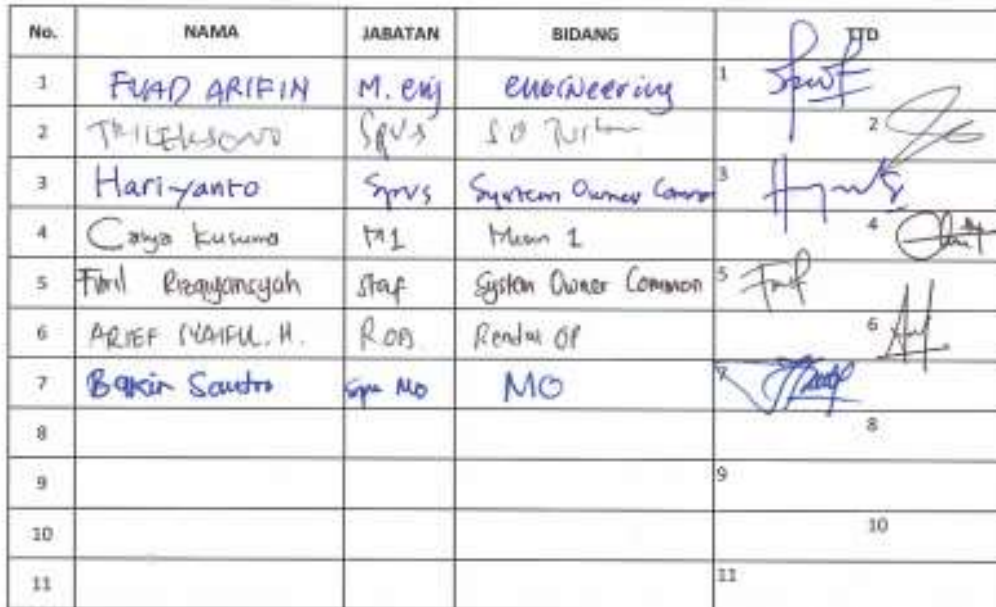 No. NAMA JABATAN BIDANG TTD
1 FUAD ARIFIN M. eng engineering 1
2 Spvs 2
3 Hariyanto Spvs System Owner Common 3
4 Cahya Kusuma M1 Mesin 1 4
5 Rizqiyansyah Staf System Owner Common 5
6 ARIEF SYAIFUL. H. Rendal OP 6
7 MO MO 7
8 8
9 9
10 10
11 11